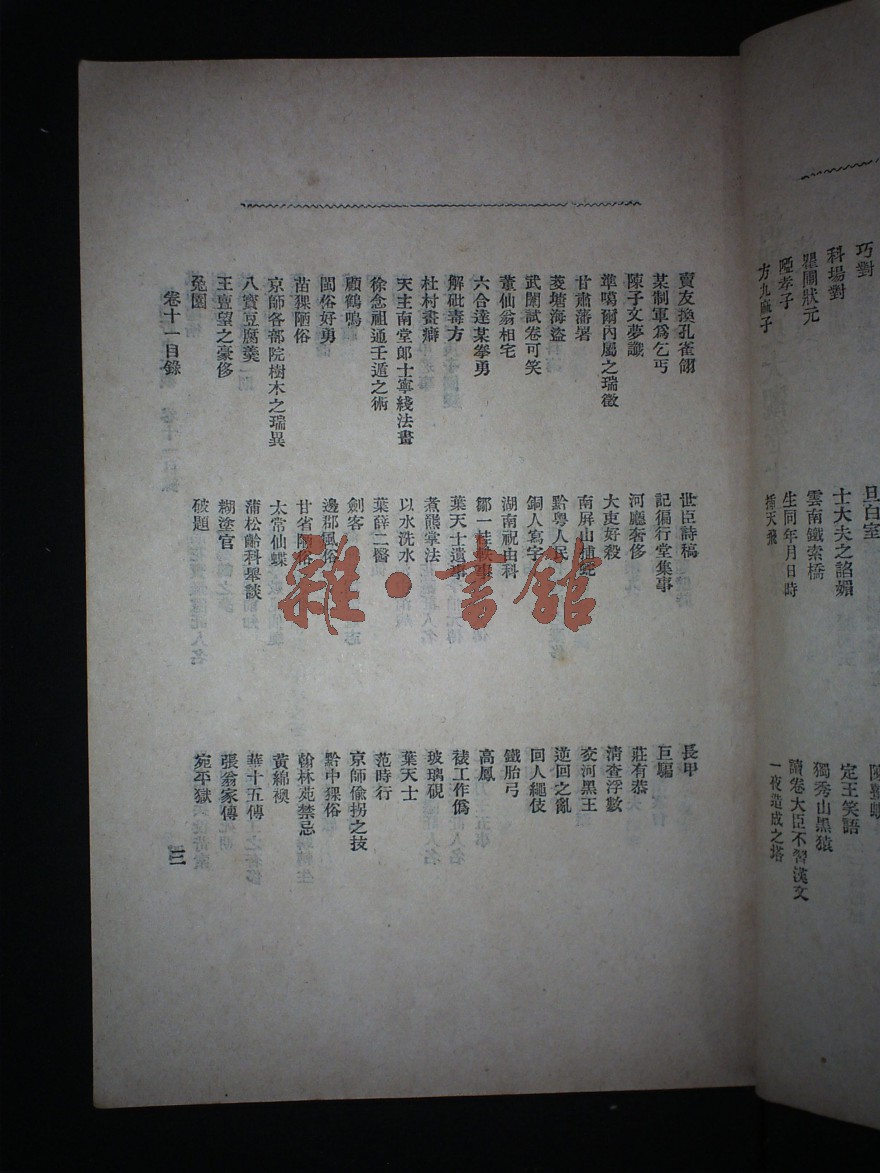 巧對
科場對
圃狀元
啞孝子
方九麻子
百室
士大夫之諂媚
雲南鐵索橋
生同年月日時
插天飛
定王笑語
獨秀山黑猿
讀卷大臣不習漢文
一夜造成之塔
賣友換孔雀翎
某制軍爲乞丐
陳子文夢讖
準噶爾內屬之瑞徵
甘肅藩署
菱塘海盜
武闈試卷可笑
董仙翁相宅
六合達某拳勇
解砒毒方
杜村畫癖
天主南堂郎士寧綫法畫
徐念祖通壬遁之術
顧鶴鳴
閩俗好勇
苗猓陋俗
京師各部院樹木之瑞異
八寶豆腐羹
王亶望之豪侈
兔園
世臣詩稿
記徧行堂集事
河廳奢侈
大吏好殺
南屏山捕蛇
黔粵人民
銅人寫字
湖南祝由科
鄒一桂軼事
葉天士遺事
煮熊掌法
以水洗水
葉薛二醫
劍客
邊郡風俗
甘省陋俗
太常仙蝶
蒲松齡科舉談
糊塗官
破題
長甲
巨騙
莊有恭
清查浮數
交河黑王
逆回之亂
回人繩伎
鐵胎弓
高鳳
裱工作僞
玻璃硯
葉天士
范時行
京師偷拐之技
黔中猓俗
翰林苑禁忌
黃綿襖
華十五傳
張翁家傳
宛平獄
卷十一目錄
三
雜·書館